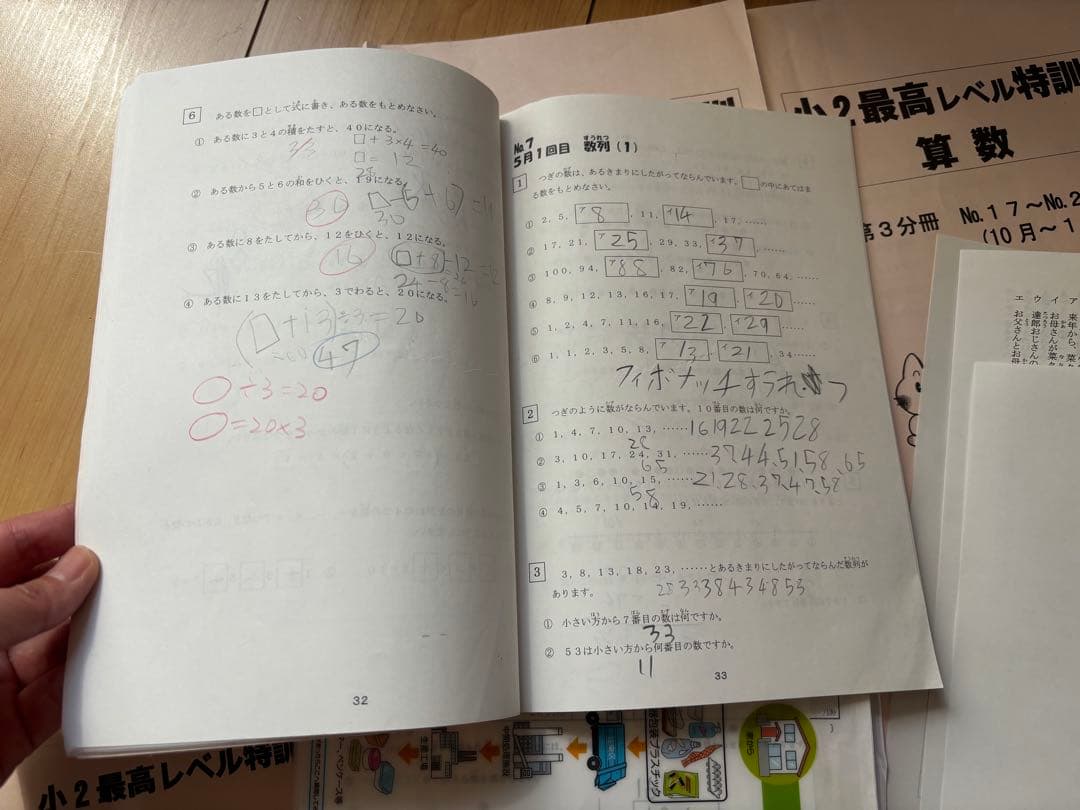 6 ある数を□として式に書き、ある数をもとめなさい。
① ある数に3と4の積をたすと、40になる。
□+3×4=40
□=12
28
② ある数から5と6の和をひくと、19になる。
30
30
③ ある数に8をたしてから、12をひくと、12になる。
16
□+8-12=12
24-8=16
④ ある数に13をたしてから、3でわると、20になる。
(□+13)÷3=20
47
○÷3=20
○=20×3
32
No.7
5月1回目 数列(1)
すうれつ
1 つぎの数は、あるきまりにしたがってならんでいます。□の中にあてはまる数をもとめなさい。
① 2, 5, ア8, 11, イ14, 17, ……
② 17, 21, ア25, 29, 33, イ37, ……
③ 100, 94, ア88, 82, イ76, 70, 64, ……
④ 8, 9, 12, 13, 16, 17, ア19, イ20, ……
⑤ 1, 2, 4, 7, 11, 16, ア22, イ29, ……
⑥ 1, 1, 2, 3, 5, 8, ア13, イ21, 34, ……
フィボナッチすうれつ
2 つぎのように数がならんでいます。10番目の数は何ですか。
① 1, 4, 7, 10, 13, ……16 19 22 25 28
28
② 3, 10, 17, 24, 31, ……37.44.51.58.65
65
③ 1, 3, 6, 10, 15, ……21.28.37.47.58
58
④ 4, 5, 7, 10, 14, 19, ……
3 3, 8, 13, 18, 23, ……とあるきまりにしたがってならんだ数列が
あります。
28 33 38 43 48 53
① 小さい方から7番目の数は何ですか。
33
② 53は小さい方から何番目の数ですか。
11
33
小2最高レベル特訓
算数
第3分冊 No.17～No.2
(10月～1
ア 来年から、菜々
イ お母さんが菜々
ウ 達郎おじさんの
エ お父さんとお母
小2最高レベル特訓
プラスチック